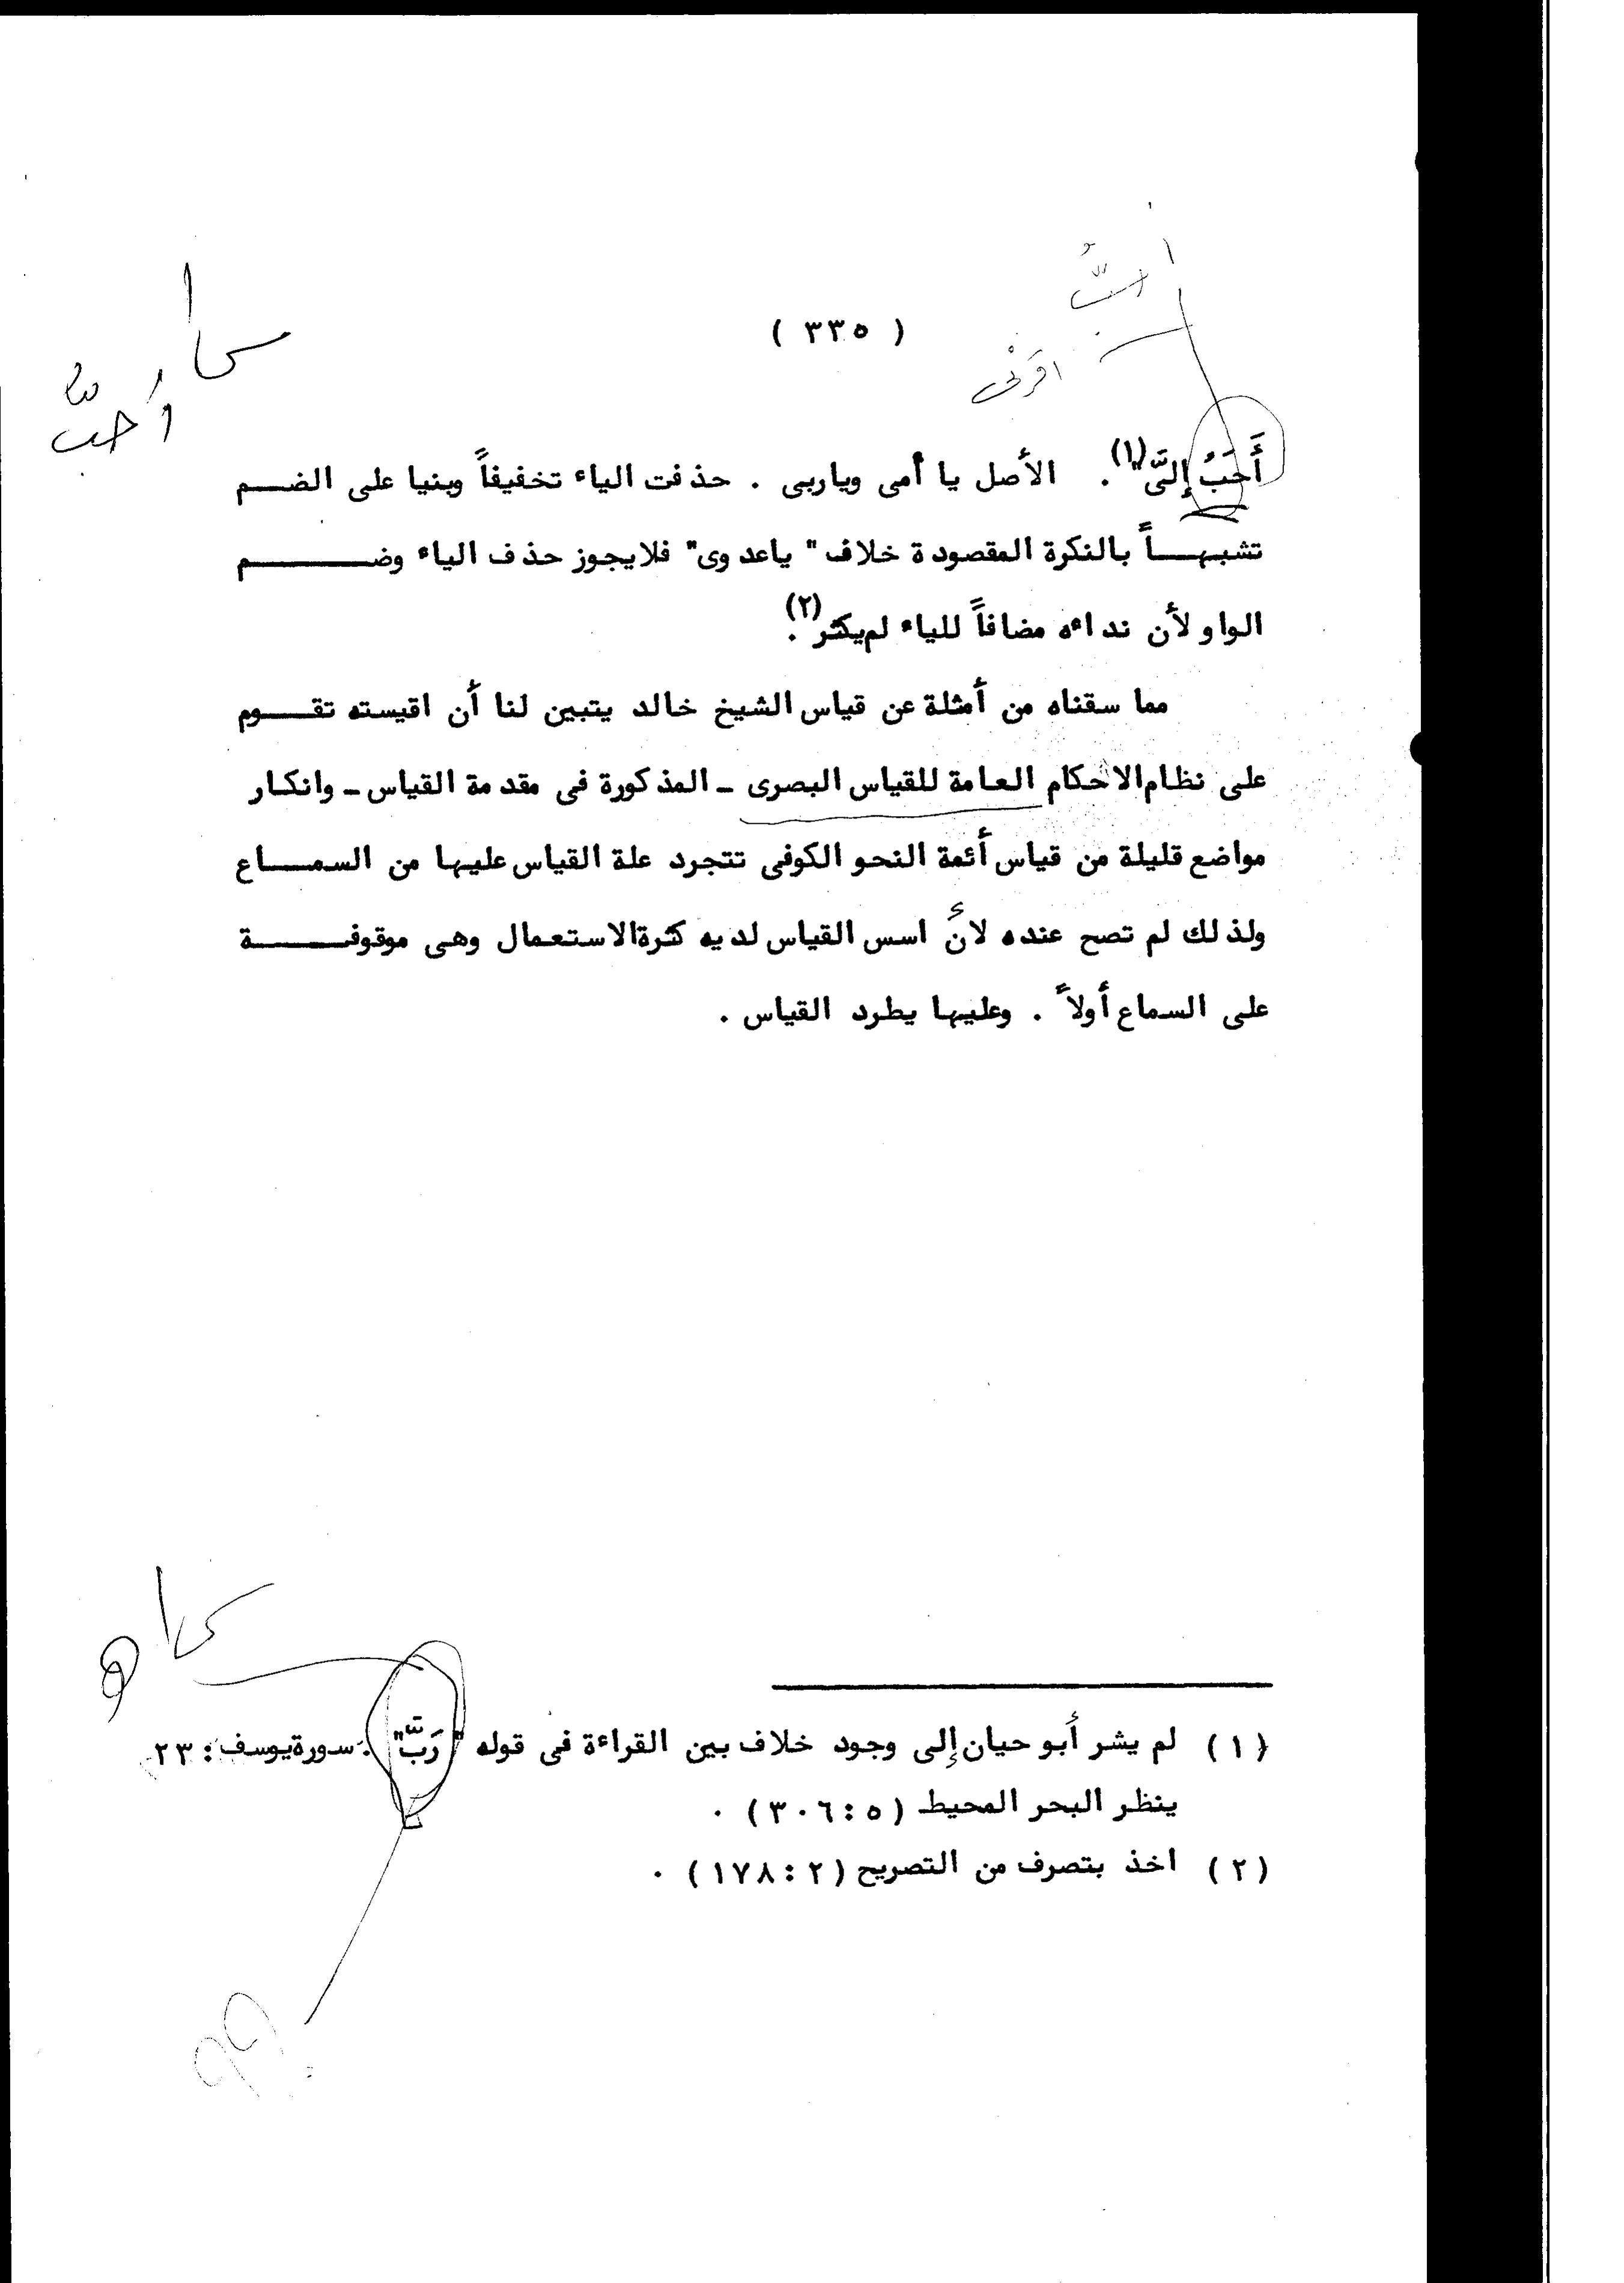 ( ٣٣٥ )
أَحَبُّ إِلىَّ"(١) . الأصل يا أمى وياربى . حذفت الياء تخفيفاً وبنيا على الضم
تشبهاً بالنكرة المقصودة خلاف " ياعدوى" فلايجوز حذف الياء وضم
الواو لأن نداءه مضافاً للياء لم يكثر(٢) .
مما سقناه من أمثلة عن قياس الشيخ خالد يتبين لنا أن اقيسته تقوم
على نظام الاحكام العامة للقياس البصرى ـ المذكورة فى مقدمة القياس ـ وانكار
مواضع قليلة من قياس أئمة النحو الكوفى تتجرد علة القياس عليها من السماع
ولذلك لم تصح عنده لانً اسس القياس لديه كثرة الاستعمال وهى موقوفة
على السماع أولاً . وعليها يطرد القياس .
(١) لم يشر أبو حيان إلى وجود خلاف بين القراءة فى قوله " رَبِّ" . سورة يوسف : ٢٣
ينظر البحر المحيط (٥ : ٣٠٦) .
(٢) اخذ بتصرف من التصريح (٢ : ١٧٨) .
أحبّ